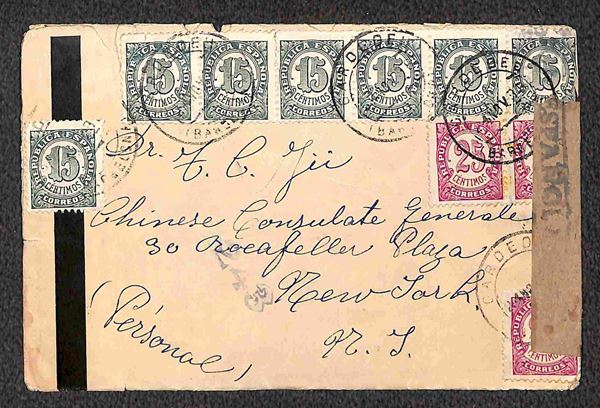 REPUBLICA ESPAÑOLA REPUBLICA ESPAÑOLA REPUBLICA ESPAÑOLA REPUBLICA ESPAÑOLA REPUBLICA ESPAÑOLA REPUBLICA ESPAÑOLA
15 15 15 15 15 15
CENTIMOS CENTIMOS CENTIMOS CENTIMOS CENTIMOS CENTIMOS
CORREOS CORREOS CORREOS CORREOS CORREOS CORREOS
REPUBLICA ESPAÑOLA
15
CENTIMOS
CORREOS
REPUBLICA ESPAÑOLA
25
CENTIMOS
CORREOS
Dr. T. C. Yii
Chinese Consulate Generale
30 Rocafeller Plaza
New York
N. J.
(Pérsonal)
CARDED
REPUBLICA
CENTIMOS
CORREOS